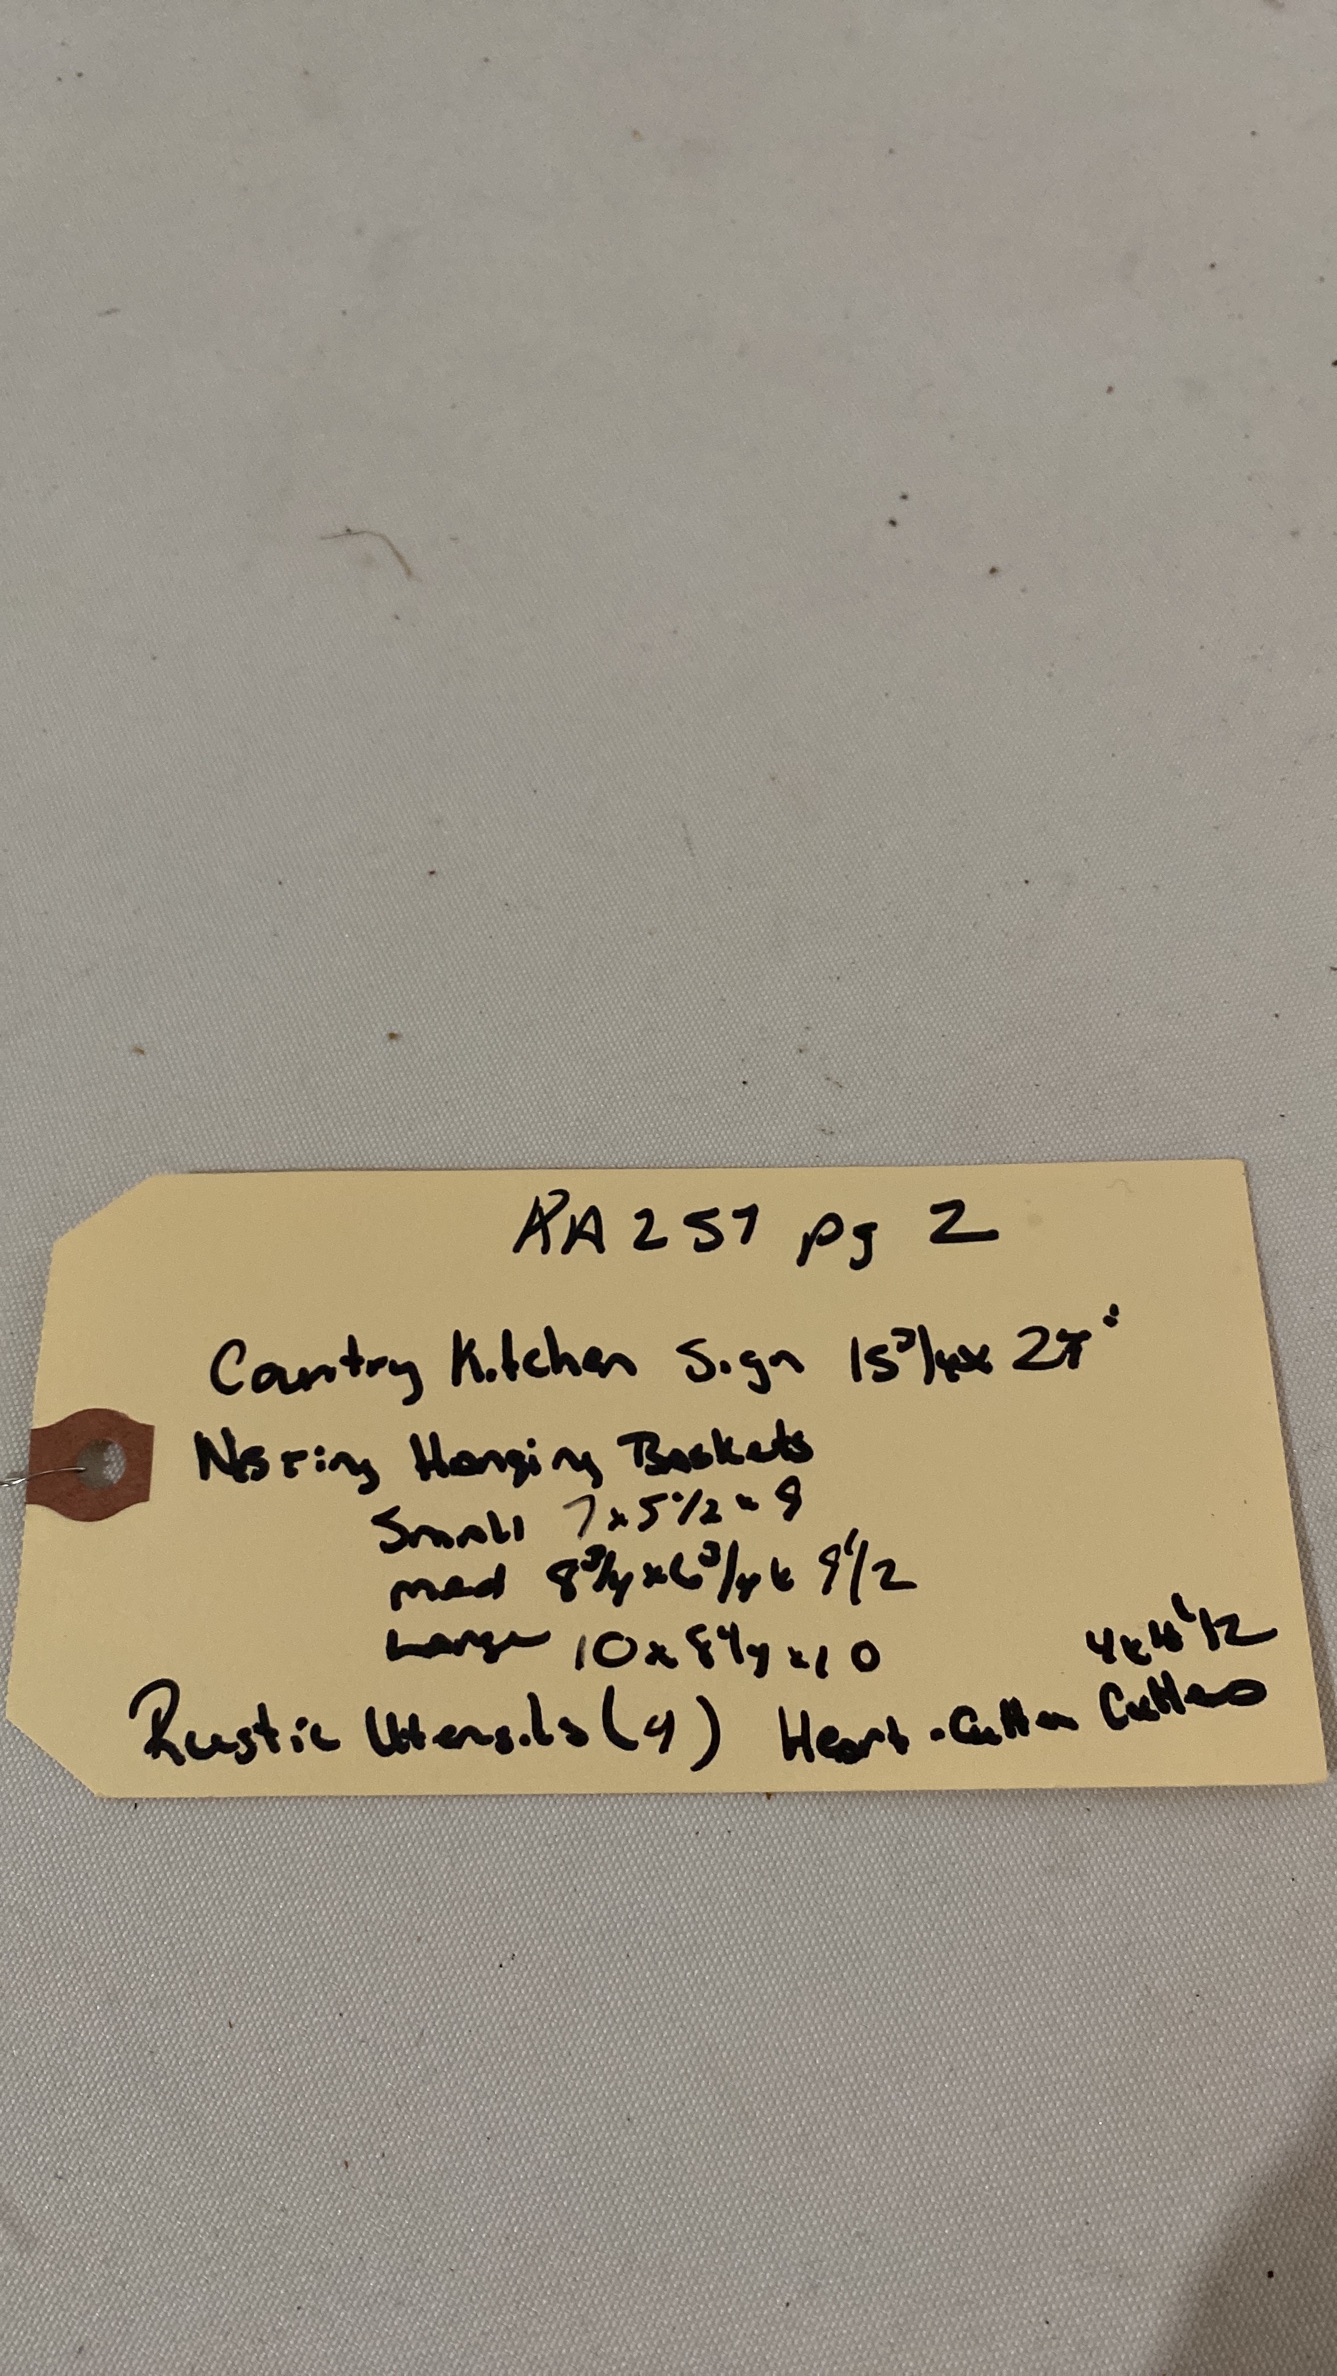 RA257 pg 2
Country Kitchen Sign 15 3/4 x
Nesting Hanging Baskets
Small 7 x 5 1/2 x 9
med 8 3/4 x 6 3/4 x 9 1/2
Large 10 x 8 x 10
Rustic Utensils (4) Heart